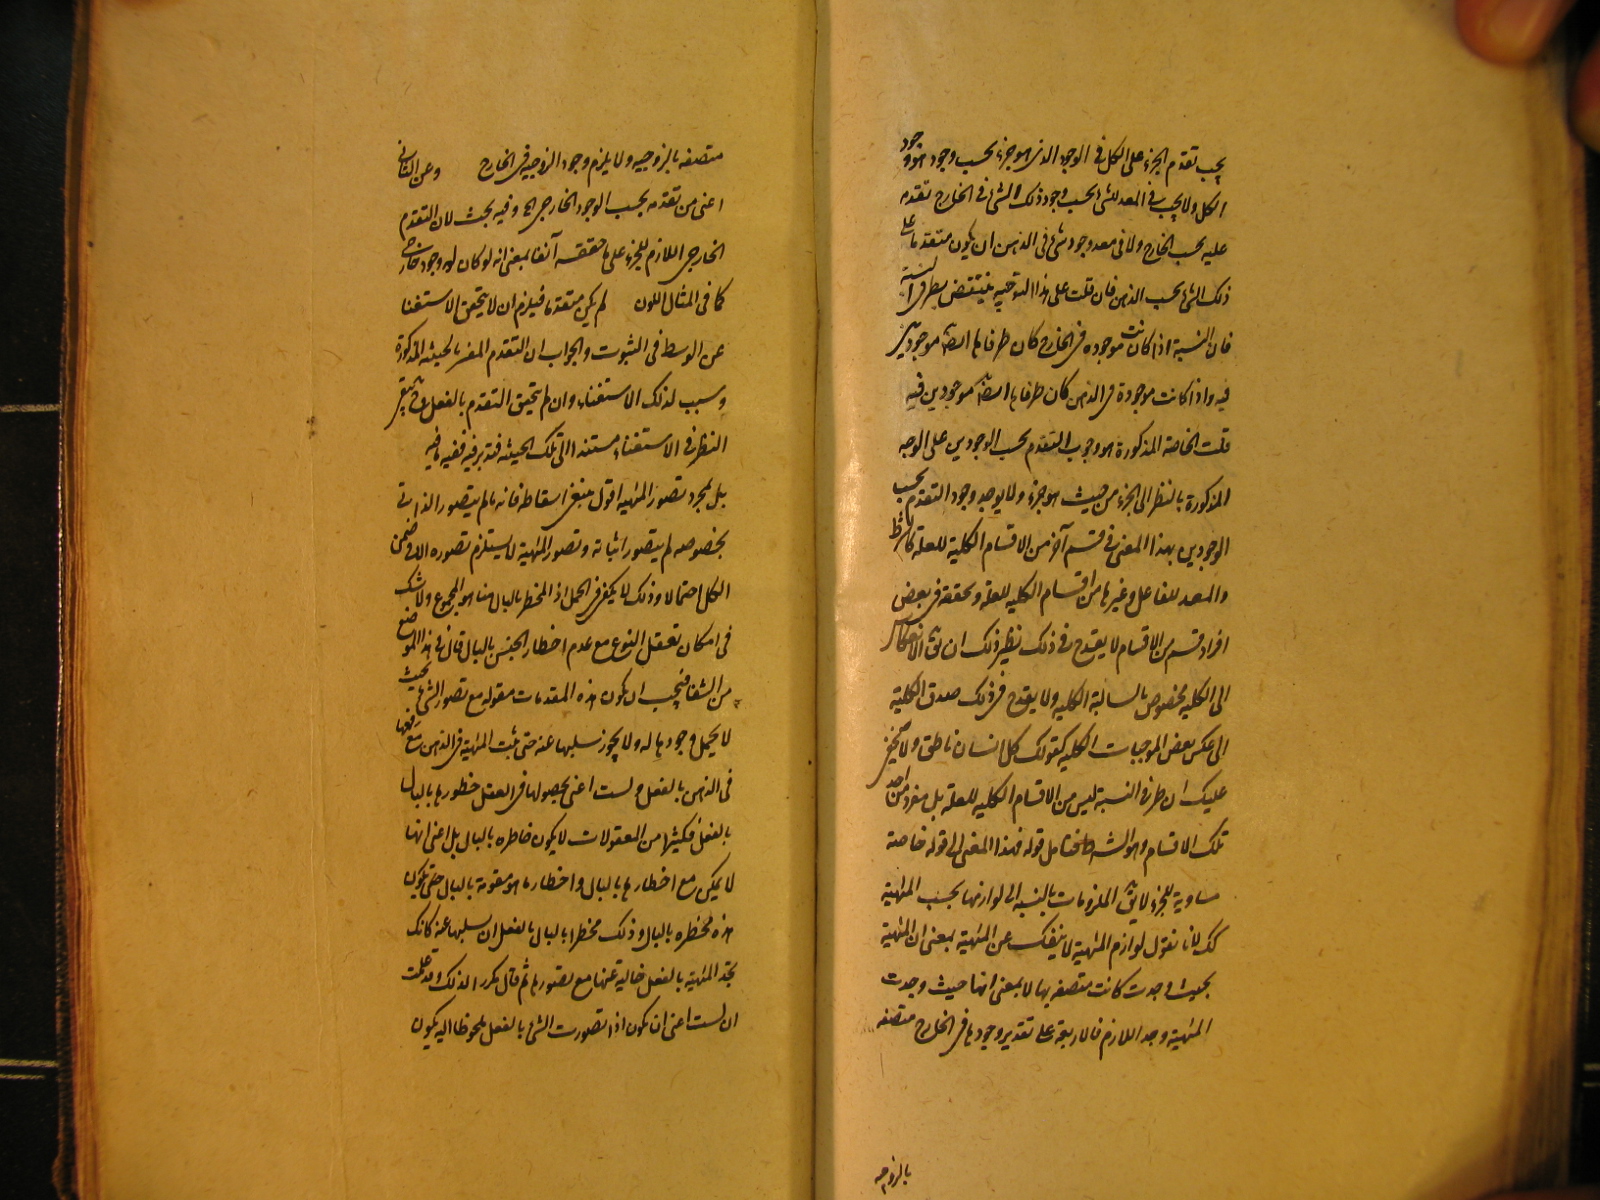 يجب تقدم الجزء على الكل في الوجود الذي هو جزء بحسب وجود هو وجود
الكل ولا يجب في المعد للشئ بحسب وجود ذلك الشئ في الخارج تقدمه
عليه بحسب الخارج ولا في معد وجود شئ في الذهن ان يكون متقدما على
ذلك الشئ بحسب الذهن فان قلت على هذا التوجيه ينتقض بطرفي النسبة
فان النسبة اذا كانت موجوده في الخارج كان طرفاها ايضا موجودين
فيه واذا كانت موجودة في الذهن كان طرفاها ايضا موجودين فيه
قلت الخاصة المذكورة هو وجوب التقدم بحسب الوجودين على الوجه
المذكورة بالنظر الى الجزء من حيث هو جزء ولا يوجد وجود التقدم بحسب
الوجودين بهذا المعنى في قسم آخر من الاقسام الكلية للعلة كالشرط
والمعد للفاعل وغيرها من اقسام الكليه للعلة وتحققه في بعض
افراد قسم من الاقسام لا يقدح في ذلك نظير ذلك ان يق الانعكاس
الى الكليه مخصوص بالسالبة الكليه ولا يقدح في ذلك صدق الكلية
الى عكس بعض الموجبات الكليه كقولك كل انسان ناطق ولا يخفى
عليك ان طرفي النسبة ليس من الاقسام الكليه للعلة بل مفرد من احد
تلك الاقسام وهو الشرط فتامل قوله فهذا المعنى الى قوله خاصة
مساوية للجزء لا يق الملزومات بالنسبه الى لوازمها بحسب المهية
كك لانا نقول لوازم المهية لا ينفك عن المهية بمعنى ان المهية
بحيث وجدت كانت متصفه بها لا بمعنى انها حيث وجدت
المهية وجد اللازم فالاربعة على تقدير وجودها في الخارج متصفه
بالزوجيه
متصفه بالزوجيه ولا يلزم وجود الزوجيه في الخارج وعن الثاني
اعنى من تقدمه بحسب الوجود الخارجي الخ وفيه بحث لان التقدم
الخارجي اللازم للجزء على ما حققه آنفا بمعنى انه لو كان له وجود خارجي
كما في المثال اللون لم يكن متقدما فيلزم ان لا يتحقق الاستغنا
عن الوسط في الثبوت والجواب ان التقدم المفسر بالحيثيه المذكورة
وسبب لذلك الاستغناء وان لم يتحقق التقدم بالفعل
النظر في الاستغناء مستندا الى تلك الحيثيه فتدبر فيه ففيه ما فيه
بل بمجرد تصور المهيه اقول ينبغي اسقاطه فانه ما لم يتصور الذاتي
بخصوصه لم يتصور اثباته وتصور المهية لا يستلزم تصوره الا في ضمن
الكل احتمالا وذلك لا يكفي في الحمل اذ المخطر بالبال منها هو المجموع ولا شك
في امكان تعقل النوع مع عدم اخطار الجنس بالبال قال في هذا الموضع
من الشفا فيجب ان يكون هذه المقدمات مقوله مع تصور الشئ بحيث
لا يحمل وجودها له ولا يجوز سلبها عنه حتى يثبت المهية في الذهن مع رفعها
في الذهن بالفعل ولست اعنى بحصولها في العقل خطورها بالبال
بالفعل فكثيرا من المعقولات لا يكون خاطره بالبال بل اعنى انها
لا يمكن مع اخطارها بالبال واخطار ما هو مقومة بالبال حتى يكون
هذه مخطره بالبال وذلك مخطرا بالبال بالفعل ان سلبها عنه كانك
تجد المهية بالفعل خالية عنها مع تصورها ثم قال مكررا لذلك وقد علمت
ان لست اعنى ان يكون اذا تصورت الشئ بالفعل ملحوظا اليه يكون